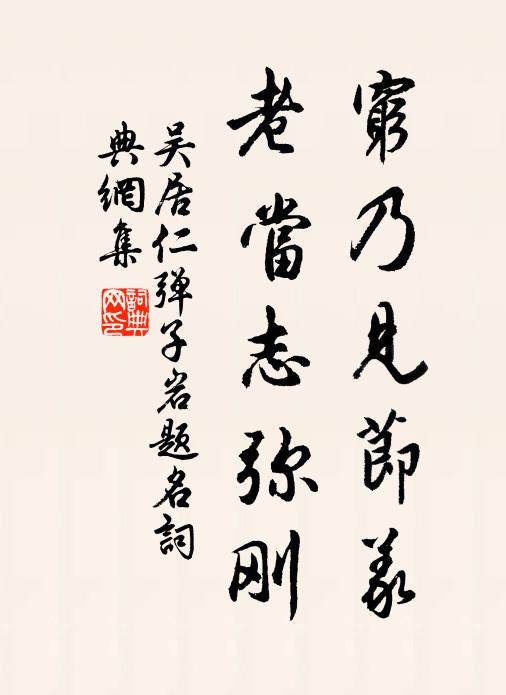 窮乃見節義
老當志弥刚
吴居仁弹子岩题名詞
典網集
詞典网印